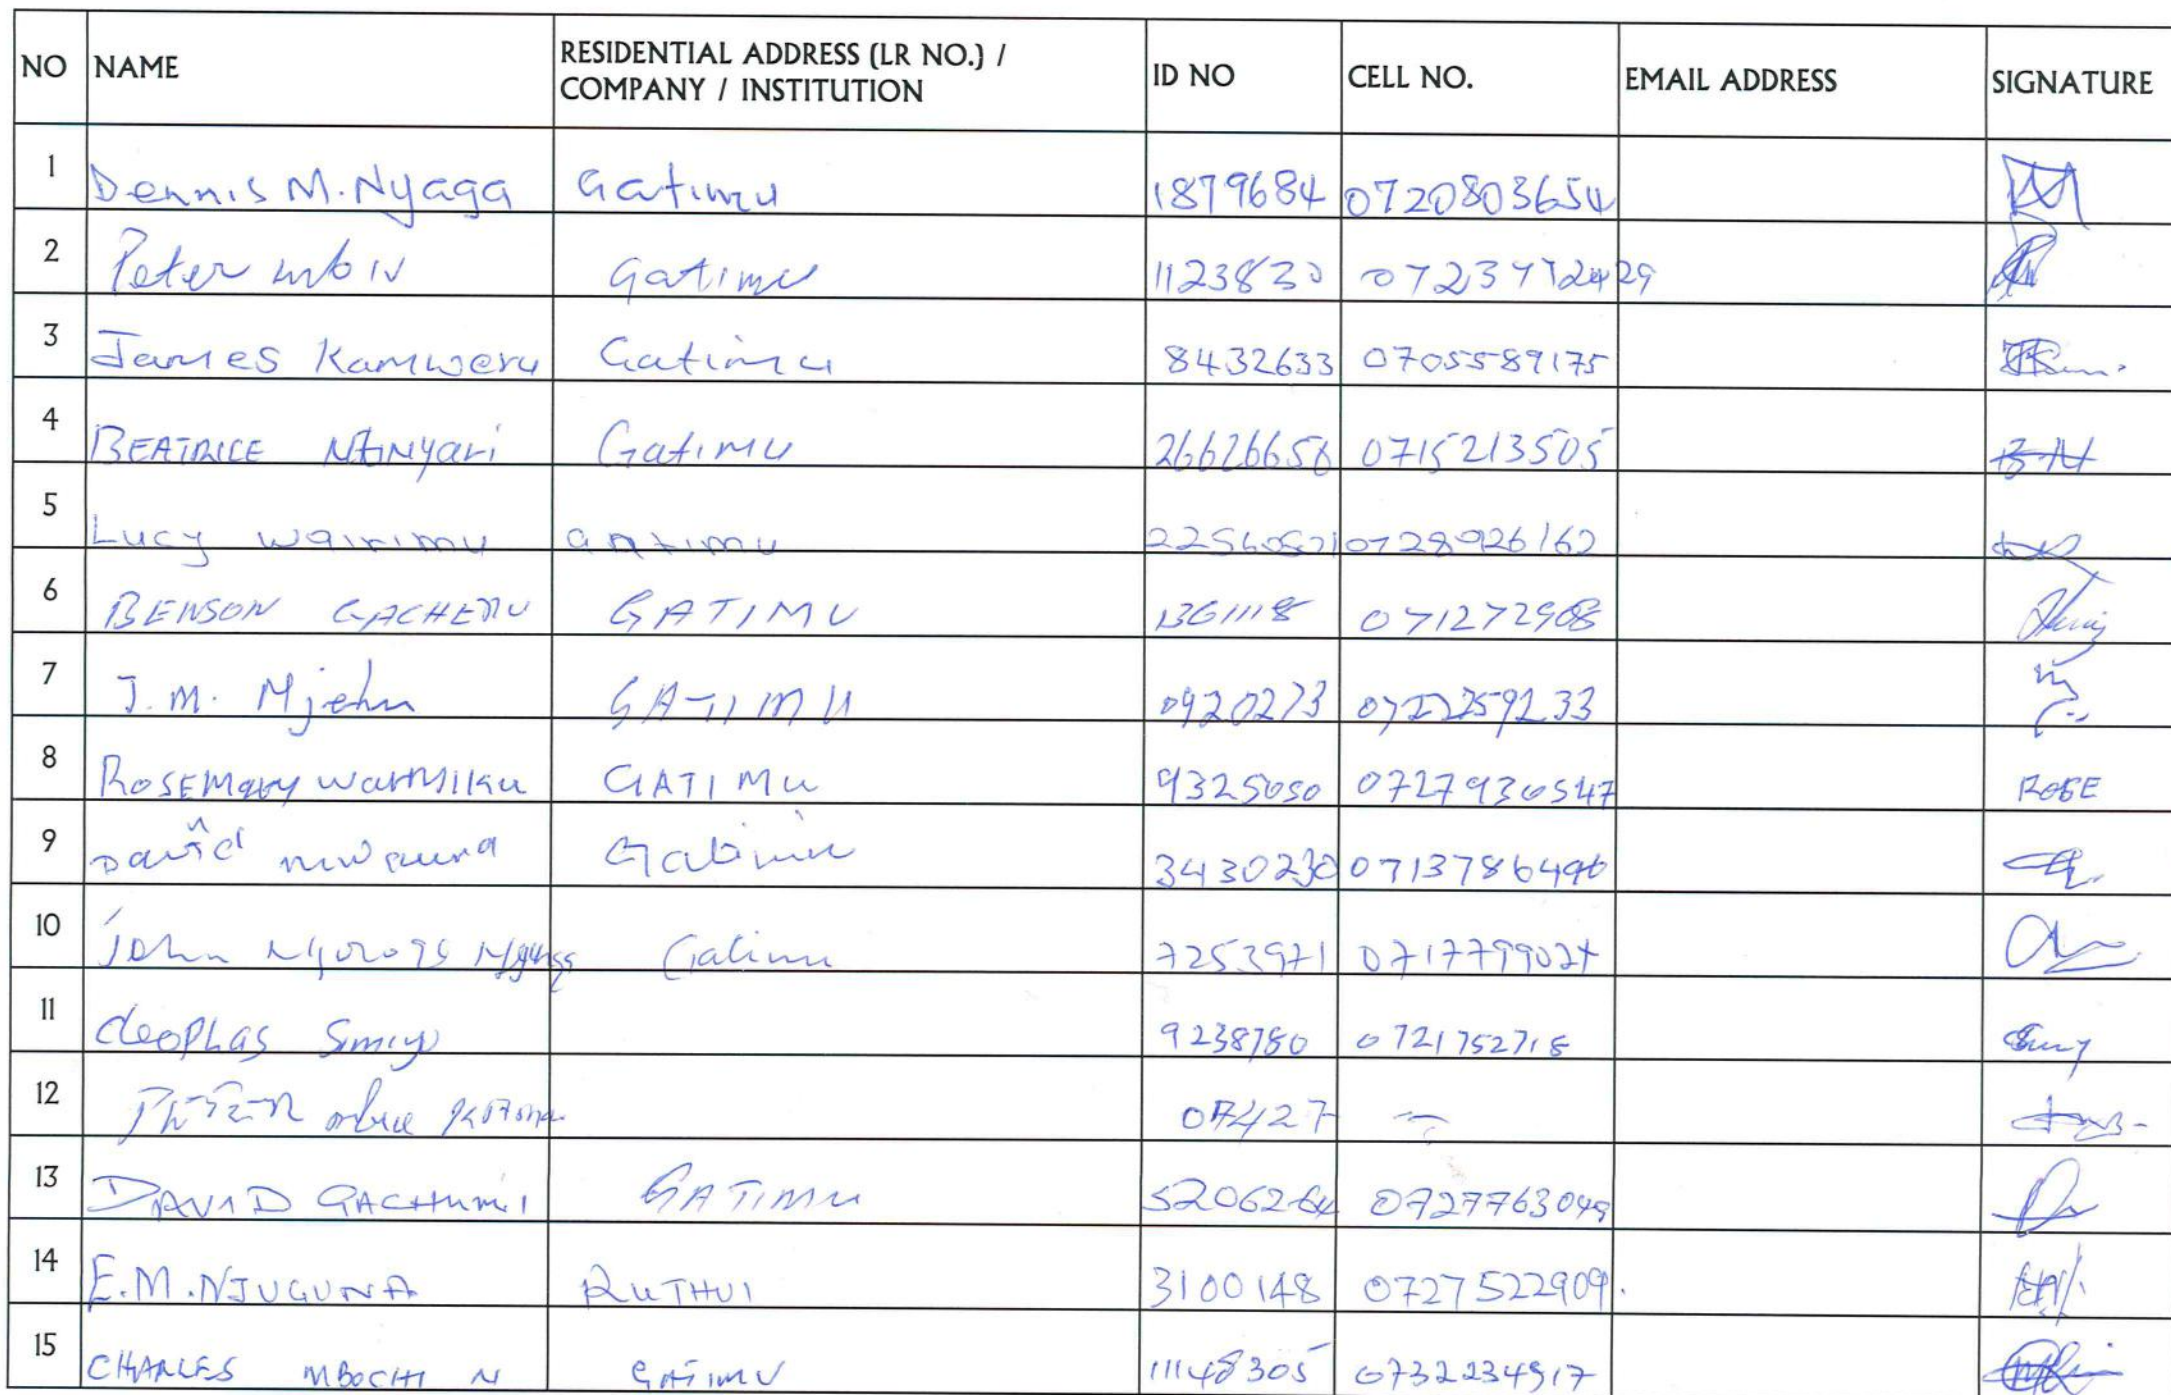 NO NAME RESIDENTIAL ADDRESS (LR NO.) / COMPANY / INSTITUTION ID NO CELL NO. EMAIL ADDRESS SIGNATURE
1 Dennis M. Nyaga Gatimu 1879684 0720803654
2 Peter Gatimu 1123830
3 James Kamweru Gatimu 8432633 0705589175
4 BEATRICE Gatimu 0715213505
5 Lucy wairimu Gatimu 0728926162
6 BENSON GACHERU GATIMU 071272908
7 J.M. GATIMU 0920273
8 ROSEMary GATIMU 9325050 0727930547 ROSE
9 David mwaura Gatimu 3430230
10 John Gatimu 7253971
11 Cleophas 9238780 0721752718
12 07427
13 DAVID GATIMU 5206264 0727763049
14 E.M. NJUGUNA RUTHUI 3100148 0727522909.
15 CHARLES MBOCHI N GATIMU 11148305 0732234917